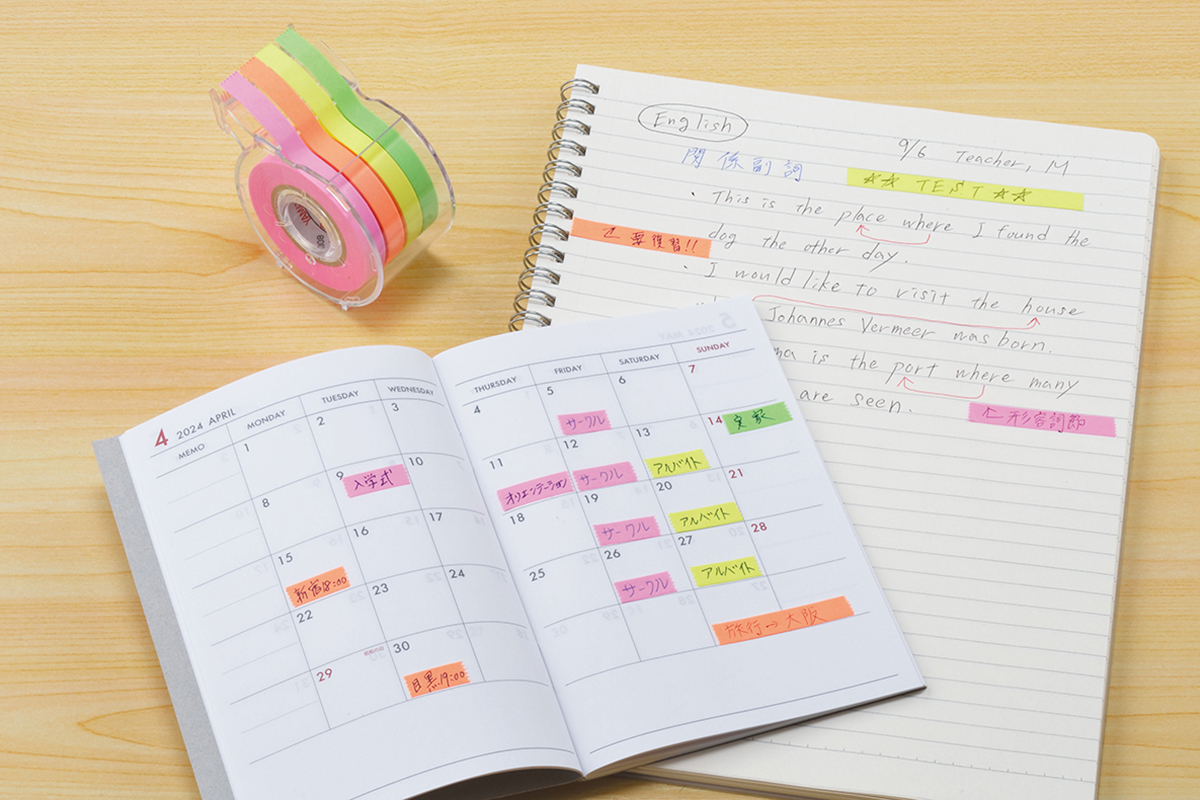 English
9/6 Teacher, M
関係副詞
☆☆ TEST ☆☆
・This is the place where I found the
dog the other day.
要復習!!
・I would like to visit the house
Johannes Vermeer was born.
is the port where many
are seen.
←形容詞節
4 2024 APRIL
MEMO MONDAY TUESDAY WEDNESDAY THURSDAY FRIDAY SATURDAY SUNDAY
1 2 3 4 5 6 7
サークル
8 9 10 11 12 13 14
入学式 オリエンテーション サークル アルバイト 実家
15 16 17 18 19 20 21
新宿18:00 サークル アルバイト
22 23 24 25 26 27 28
サークル アルバイト
29 30
目黒19:00
旅行→大阪
808